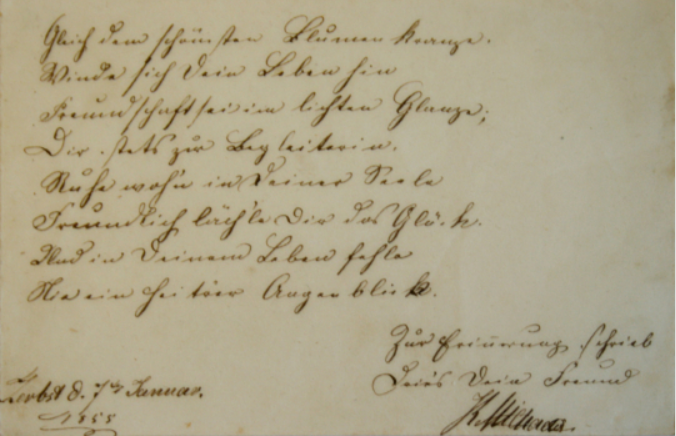 Gleich dem schönsten Blumen Kranze.
Winde sich Dein Leben hin
Freundschaft sei im lichten Glanze;
Dir stets zur Begleiterin.
Ruhe wohn in Deiner Seele
Freundlich läch'le Dir das Glück.
Und in Deinem Leben fehle
Nie ein heitrer Augenblick.
Zur Erinnerung schrieb
Dies Dein Freund
Zerbst d. 7ten Januar.
1855